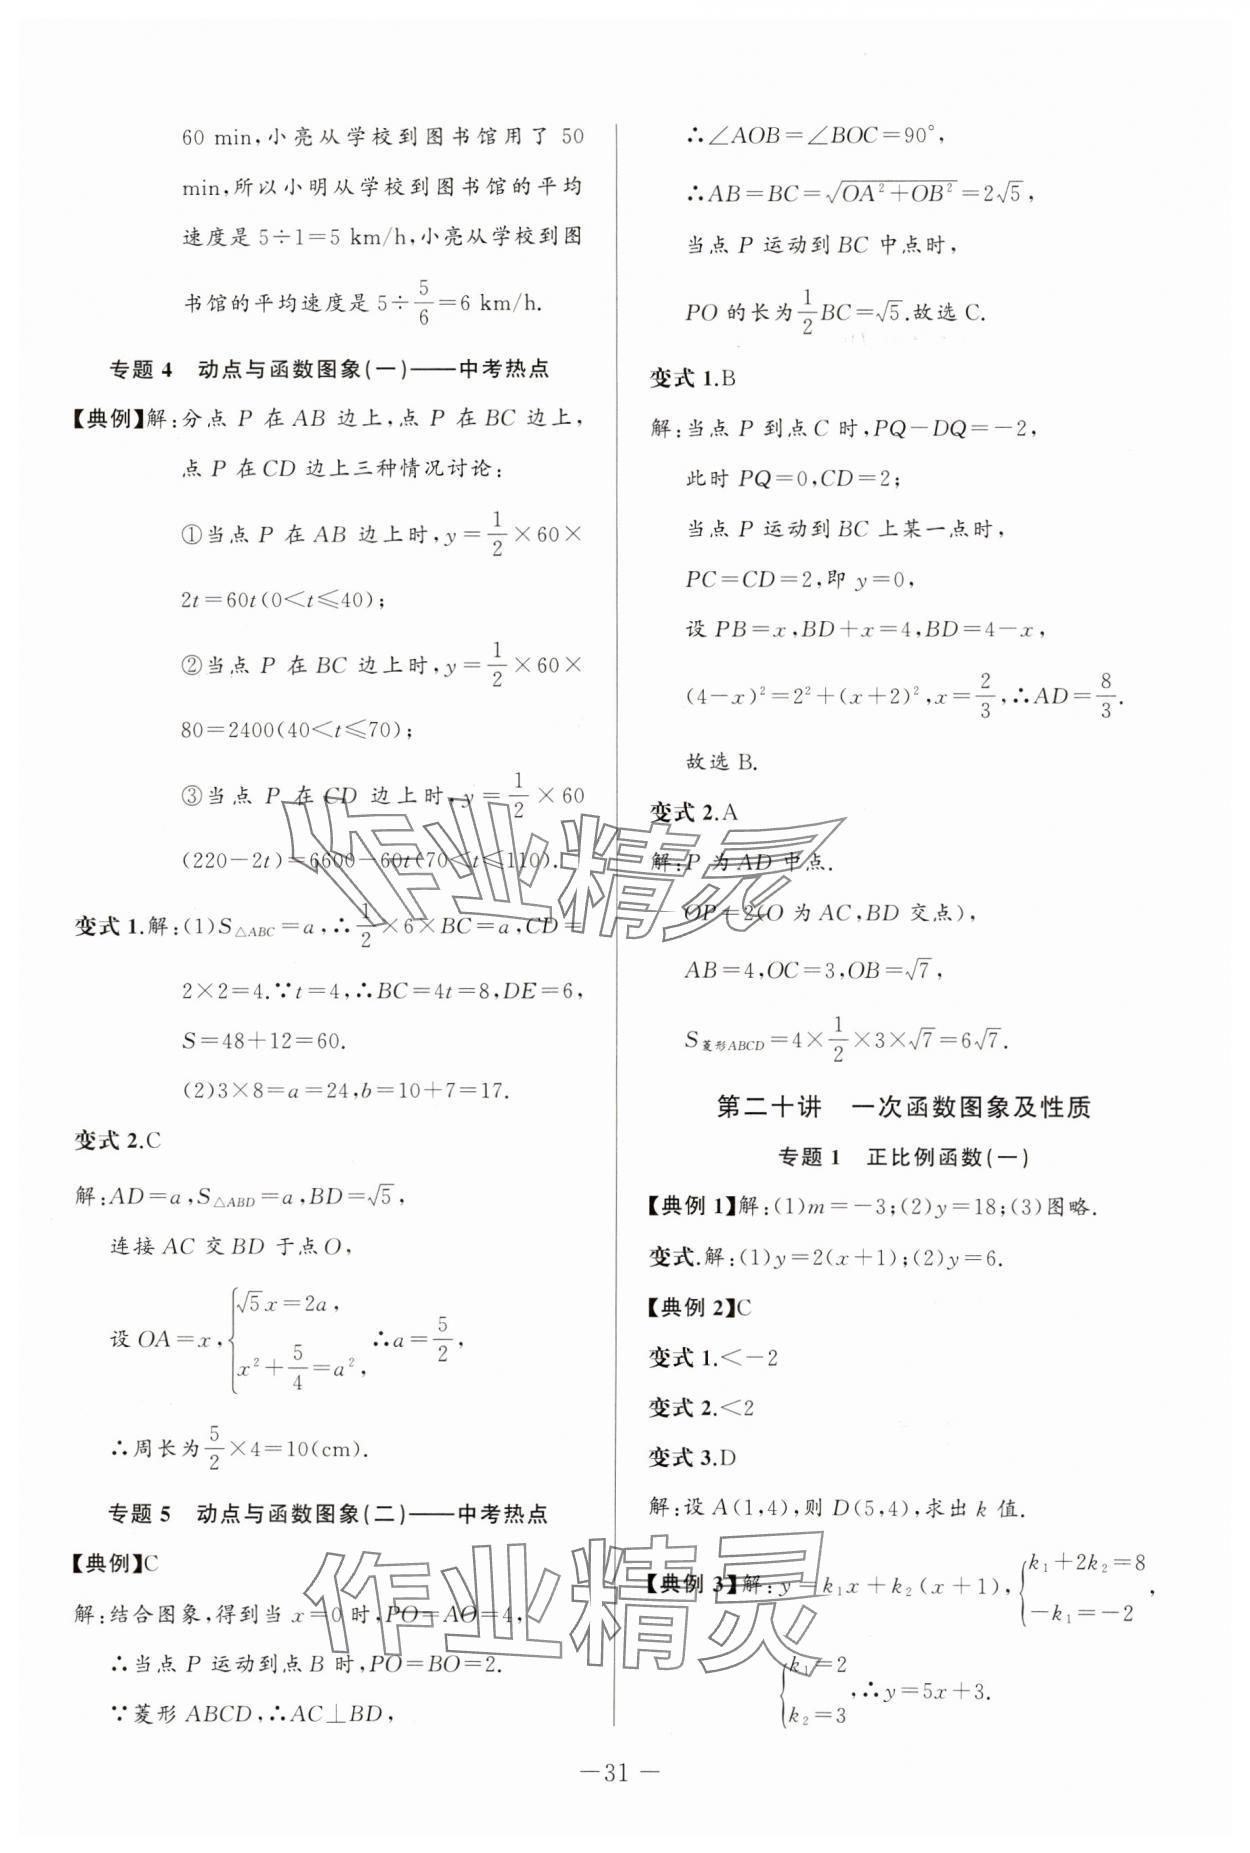 60 min,小亮从学校到图书馆用了 50
min,所以小明从学校到图书馆的平均
速度是 5÷1=5 km/h,小亮从学校到图
书馆的平均速度是 5÷5/6=6 km/h.
专题 4 动点与函数图象(一)——中考热点
【典例】解:分点 P 在 AB 边上,点 P 在 BC 边上,
点 P 在 CD 边上三种情况讨论:
①当点 P 在 AB 边上时,y=1/2×60×
2t=60t(0<t≤40);
②当点 P 在 BC 边上时,y=1/2×60×
80=2400(40<t≤70);
③当点 P 在 CD 边上时,y=1/2×60
(220-2t)=6600-60t(70<t≤110).
变式 1.解:(1)S△ABC=a,∴1/2×6×BC=a,CD=
2×2=4.∵t=4,∴BC=4t=8,DE=6,
S=48+12=60.
(2)3×8=a=24,b=10+7=17.
变式 2.C
解:AD=a,S△ABD=a,BD=√5,
连接 AC 交 BD 于点 O,
设 OA=x,{√5x=2a, x²+5/4=a², ∴a=5/2,
∴周长为5/2×4=10(cm).
专题 5 动点与函数图象(二)——中考热点
【典例】C
解:结合图象,得到当 x=0 时,PO=AO=4,
∴当点 P 运动到点 B 时,PO=BO=2.
∵菱形 ABCD,∴AC⊥BD,
∴∠AOB=∠BOC=90°,
∴AB=BC=√(OA²+OB²)=2√5,
当点 P 运动到 BC 中点时,
PO 的长为1/2BC=√5.故选 C.
变式 1.B
解:当点 P 到点 C 时,PQ-DQ=-2,
此时 PQ=0,CD=2;
当点 P 运动到 BC 上某一点时,
PC=CD=2,即 y=0,
设 PB=x,BD+x=4,BD=4-x,
(4-x)²=2²+(x+2)²,x=2/3,∴AD=8/3.
故选 B.
变式 2.A
解:P 为 AD 中点.
OP=2(O 为 AC,BD 交点),
AB=4,OC=3,OB=√7,
S菱形ABCD=4×1/2×3×√7=6√7.
第二十讲 一次函数图象及性质
专题 1 正比例函数(一)
【典例 1】解:(1)m=-3;(2)y=18;(3)图略.
变式.解:(1)y=2(x+1);(2)y=6.
【典例 2】C
变式 1.<-2
变式 2.<2
变式 3.D
解:设 A(1,4),则 D(5,4),求出 k 值.
【典例 3】解:y=k₁x+k₂(x+1),{k₁+2k₂=8 -k₁=-2,
{k₁=2 k₂=3,∴y=5x+3.
—31—
作业精灵
作业精灵